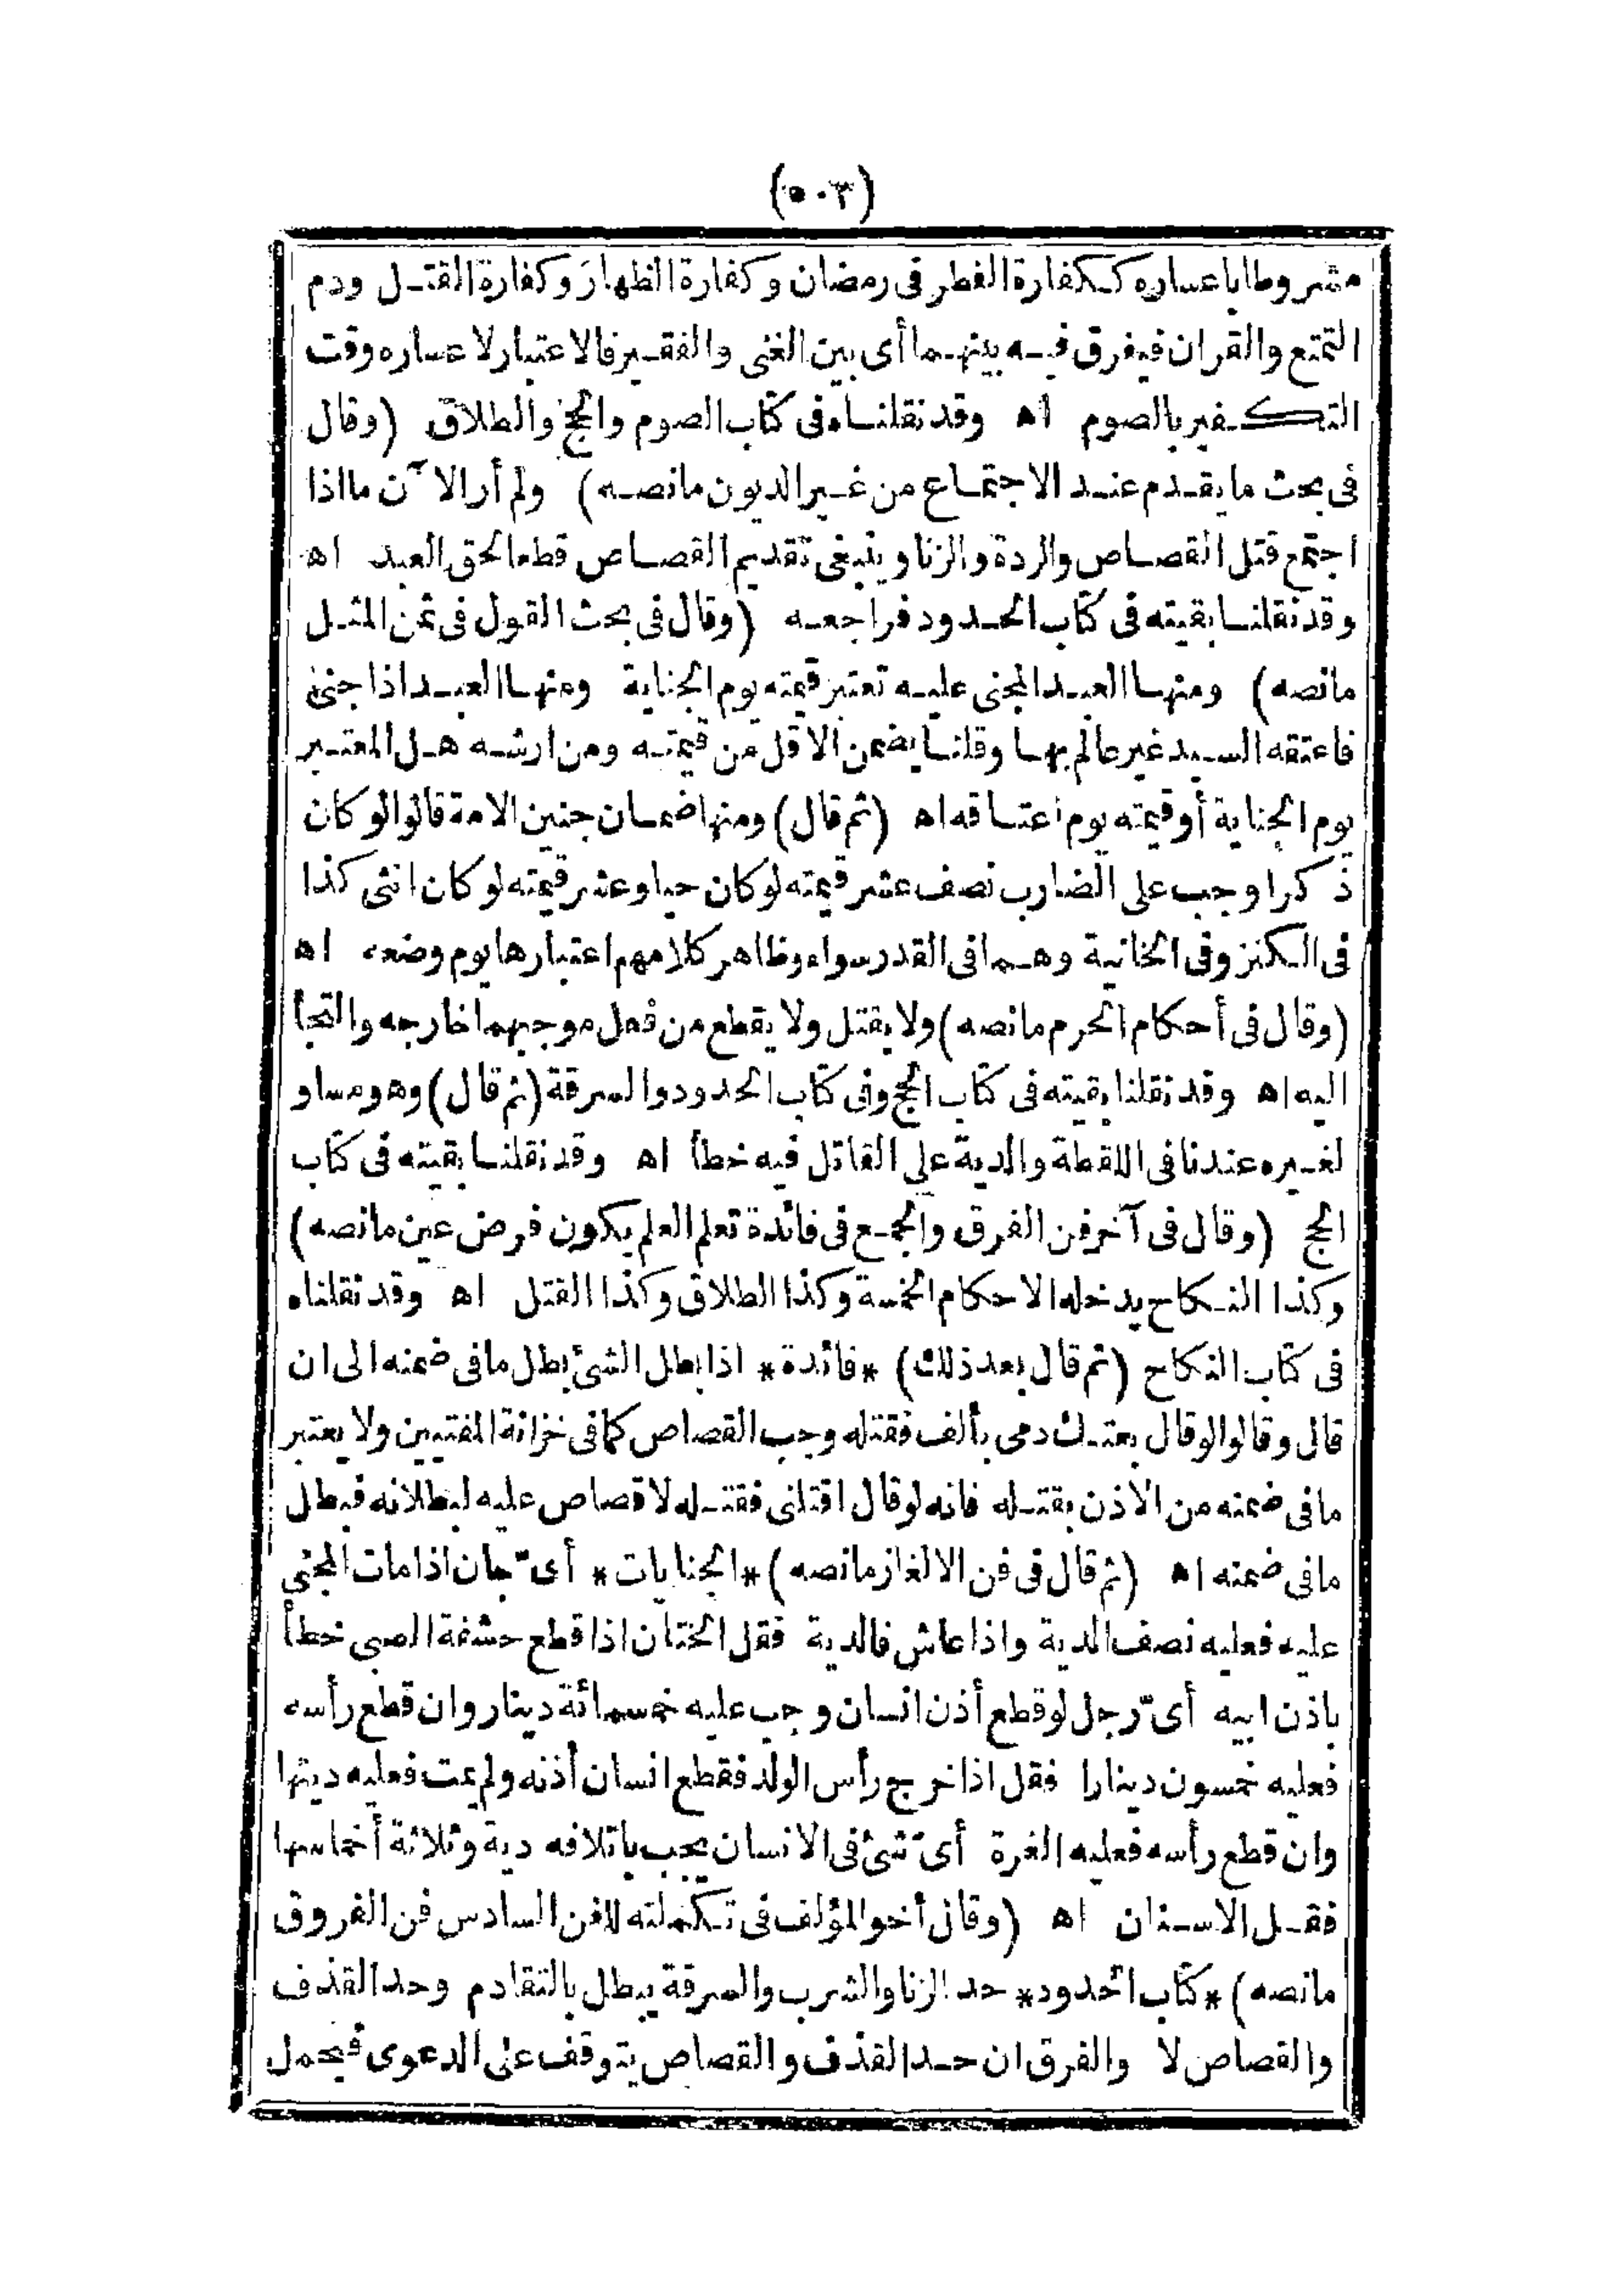 (٥٠٣)
مشروطا باعساره ككفارة الفطر فى رمضان وكفارة الظهار وكفارة القتل ودم
التمتع والقران فيفرق فيه بينهما أى بين الغنى والفقير فالاعتبار لاعساره وقت
التكفير بالصوم اه وقد نقلناه فى كتاب الصوم والحج والطلاق (وقال
فى بحث ما يقدم عند الاجتماع من غير الديون مانصه) ولم أر الآن ما اذا
اجتمع قتل القصاص والردة والزنا وينبغى تقديم القصاص قطعا لحق العبد اه
وقد نقلنا بقيته فى كتاب الحدود فراجعه (وقال فى بحث القول فى ثمن المثل
مانصه) ومنها العبد المجنى عليه تعتبر قيمته يوم الجناية ومنها العبد اذا جنى
فاعتقه السيد غير عالم بها وقلنا يضمن الاقل من قيمته ومن ارشه هل المعتبر
يوم الجناية أو قيمته يوم اعتاقه اه (ثم قال) ومنها ضمان جنين الامة قالوا لو كان
ذكرا وجب على الضارب نصف عشر قيمته لو كان حيا وعشر قيمته لو كان انثى كذا
فى الكنز وفى الخانية وهما فى القدر سواء وظاهر كلامهم اعتبارها يوم وضعه اه
(وقال فى أحكام الحرم مانصه) ولا يقتل ولا يقطع من فعل موجبهما خارجه والتجأ
اليه اه وقد نقلنا بقيته فى كتاب الحج وفى كتاب الحدود والسرقة (ثم قال) وهو مساو
لغيره عندنا فى اللقطة والدية على القاتل فيه خطأ اه وقد نقلنا بقيته فى كتاب
الحج (وقال فى آخر فن الفرق والجمع فى فائدة تعلم العلم يكون فرض عين مانصه)
وكذا النكاح يدخله الاحكام الخمسة وكذا الطلاق وكذا القتل اه وقد نقلناه
فى كتاب النكاح (ثم قال بعد ذلك) *فائدة* اذا بطل الشئ بطل ما فى ضمنه الى ان
قال وقالوا لو قال بعتك دمى بألف فقتله وجب القصاص كما فى خزانة المفتيين ولا يعتبر
ما فى ضمنه من الاذن بقتله فانه لو قال اقتلنى فقتله لا قصاص عليه لبطلانه فبطل
ما فى ضمنه اه (ثم قال فى فن الالغاز مانصه) *الجنايات* أىّ جان اذا مات المجنى
عليه فعليه نصف الدية واذا عاش فالدية فقل الختان اذا قطع حشفة الصبى خطأ
باذن ابيه أىّ رجل لو قطع أذن انسان وجب عليه خمسمائة دينار وان قطع رأسه
فعليه خمسون دينارا فقل اذا خرج رأس الولد فقطع انسان أذنه ولم يمت فعليه ديتها
وان قطع رأسه فعليه الغرة أىّ شئ فى الانسان يجب باتلافه دية وثلاثة أخماسها
فقل الاسنان اه (وقال أخو المؤلف فى تكملته للفن السادس فن الفروق
مانصه) *كتاب الحدود* حد الزنا والشرب والسرقة يبطل بالتقادم وحد القذف
والقصاص لا والفرق ان حد القذف والقصاص يتوقف على الدعوى فيحمل